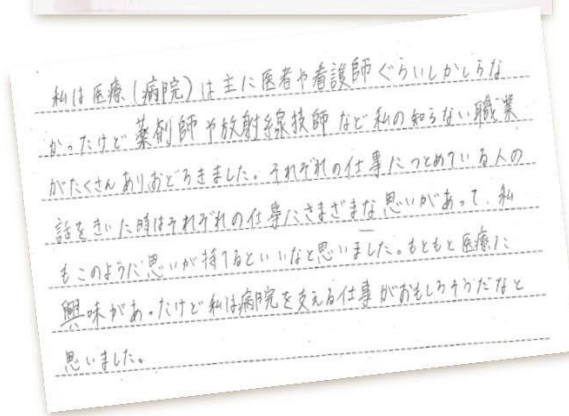 私は医療(病院)は主に医者や看護師ぐらいしかしらな
かったけど薬剤師や放射線技師など私の知らない職業
がたくさんありおどろきました。それぞれの仕事につとめている人の
話をきいた時はそれぞれの仕事にさまざまな思いがあって、私
もこのような思いが持てるといいなと思いました。もともと医療に
興味があったけど私は病院を支える仕事がおもしろそうだなと
思いました。